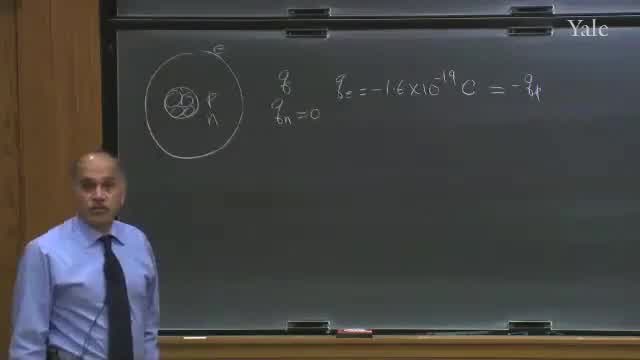 Yale
e
p
n
q
q_n = 0
q_e = -1.6 × 10^-19 C = -q_p